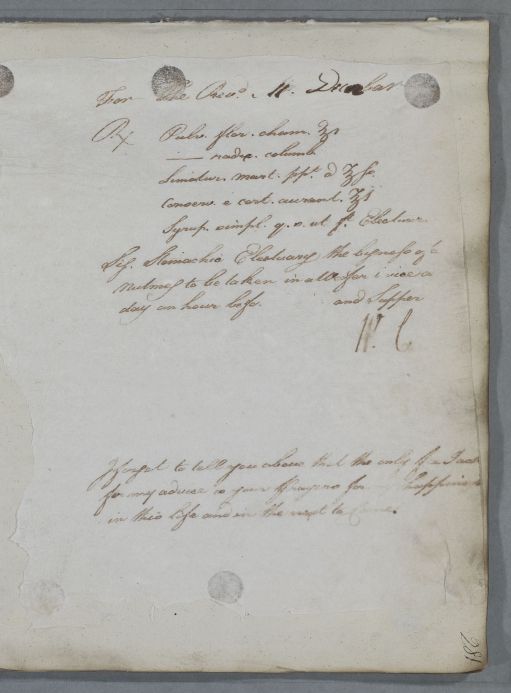 For the Revd. Mr. Dunbar
Rx Pulv. flor. cham. ʒi
—— radic. columb.
Limatur. mart. ppt. a ʒ fs.
Conserv. e cort. aurant. ʒi
Syrup. simpl. q. s. ut ft. Electuar.
Sig. Stomachic Electuary the bigness of a
nutmeg to be taken in twice a
day an hour befo. and Supper
W. C
I forgot to tell you above that the only
for my advice is your Prayers for happiness
in this life and in the next to Come.
281